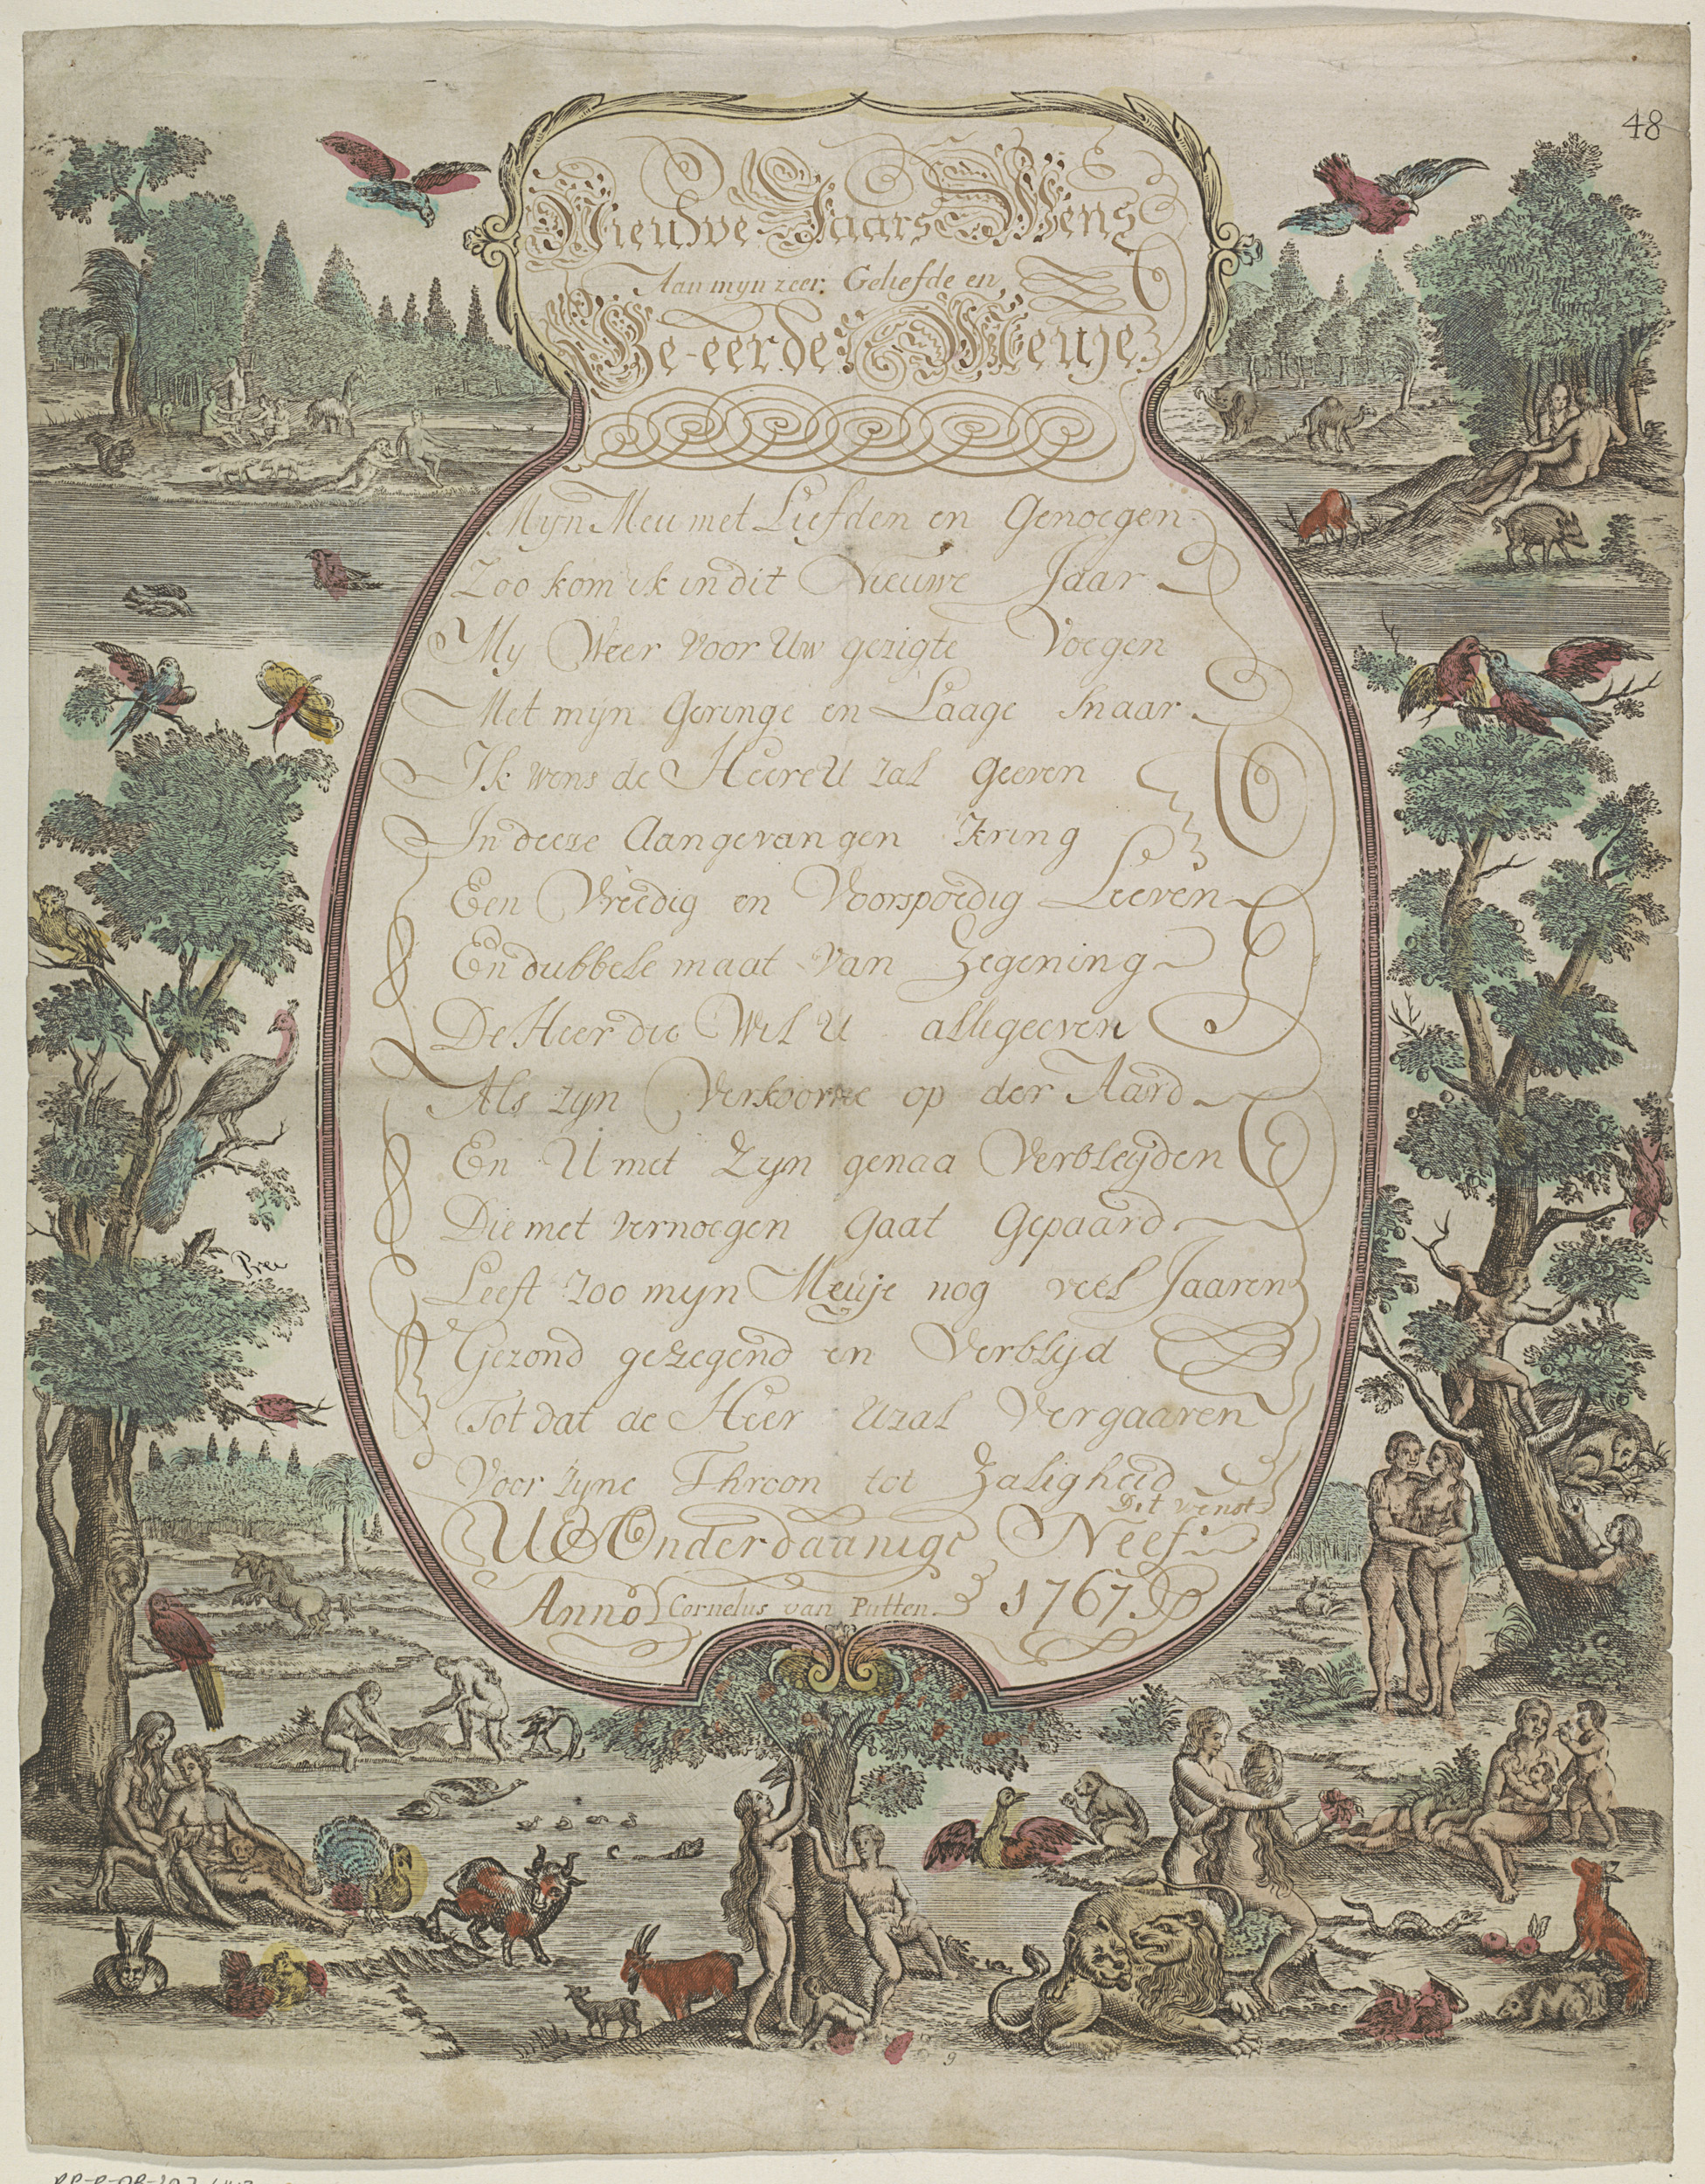 48
Nieuwe Jaars Wens
Aan mijn zeer Geliefde en
Ge-eerde Meuje
Mijn Meu met Liefden en Genoegen
Zoo kom ik in dit Nieuwe Jaar
My Weer voor Uw gezigte Voegen
Met mijn Geringe en Laage Snaar
Ik wens de Heere U zal geeven
In deeze Aangevangen Kring
Een Vreedig en Voorspoedig Leeven
En dubbele maat van Zegening
De Heer die Wil U all geeven
Als zyn Verkoorne op der Aard
En U met Zyn genaa Verbleyden
Die met vernoegen Gaat Gepaard
Leeft zoo myn Meuje nog veel Jaaren
Gezond gezegend en Verblyd
Tot dat de Heer U zal Vergaaren
Voor zyne Throon tot Zaligheid
Dit Venst
UE Onderdaanige Neef
Anno Cornelus van Putten 1767
Pree
9